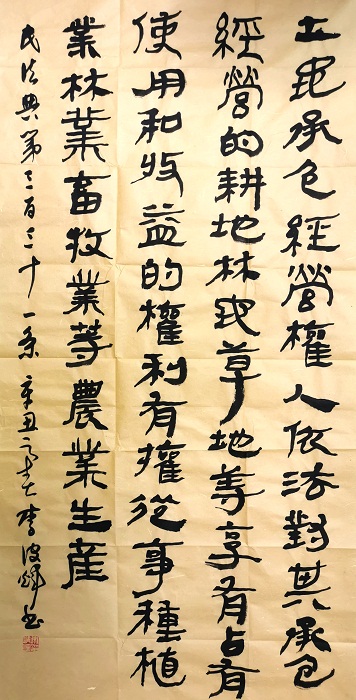 土地承包經營權人依法對其承包
經營的耕地林地草地等享有占有
使用和收益的權利有權從事種植
業林業畜牧業等農業生産
民法典第三百三十一条 辛丑 李 書